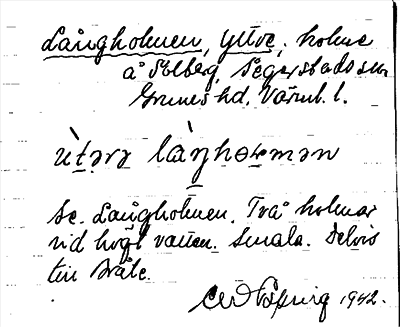 Långholmen, Yttre, holme
å Solberg, Segerstads sn
Grums hd. Värml. l.
ùtərə làŋhoɽmən
Se. Långholmen. Två holmar
vid högt vatten. Smala. Delvis
1942.